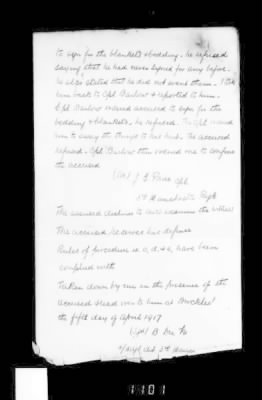 to sign for the blankets & bedding. he refused
saying that he had never signed for any before.
he also stated that he did not want them. I took
him back to Cpl Barlow & reported to him.
Cpl Barlow ordered accused to sign for the
bedding & blankets, he refused. The Cpl ordered
him to carry the things to his hut. The accused
refused. Cpl Barlow then ordered me to confine
the accused
(Sd) J E Cpl
3rd Regt
The accused declines to cross examine the witness
The accused reserves his defence
Rules of procedure 4 c, d & e, have been
complied with
Taken down by me in the presence of the
accused & read over to him at
the fifth day of April 1917
(Sgd) B
3rd
1101